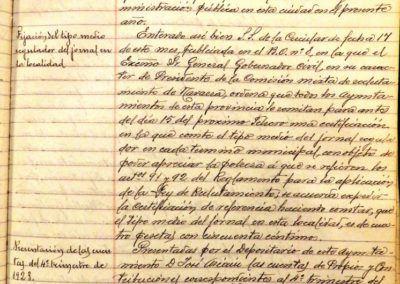 ministración pública en esta ciudad en el presente
año.
Fijación del tipo medio
regulador del jornal en
la localidad.
Enterado asi bien S.S. de la Circular de fecha 17
de este mes, publicada en el B.O. nº 8, en la que el
Excmo Sr. General Gobernador Civil, en su carac-
ter de Presidente de la Comisión mixta de recluta-
miento de Navarra, ordena que todos los Ayunta-
mientos de esta provincia le remitan para antes
del dia 15 del proximo Febrero una certificación
en la que conste el tipo medio del jornal regula-
dor en cada termino municipal, con objeto de
poder apreciar la pobreza á que se refieren los
artos 91 y 92 del Reglamento para la aplicación
de la Ley de Reclutamiento, se acuerda expedir
la certificación de referencia haciendo constar, que
el tipo medio del jornal en esta localidad, es de cua-
tro pesetas con cincuenta centimos.
Presentación de las cuen-
tas del 4º trimestre de
1928.
Presentadas por el Depositario de este Ayunta-
miento D. José las cuentas de Propios y Con-
tribución correspondientes al 4º trimestre del